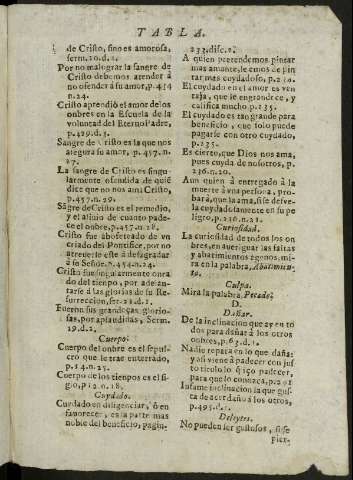 TABLA.
de Cristo, sino es amorosa,
serm. 20. d. 2.
Por no malograr la sangre de
Cristo debemos atender à
no ofender à su amor, p. 454
n. 24.
Cristo aprendiò el amor de los
onbres en la Escuela de la
voluntad del Eterno Padre,
p. 429. d. 3.
Sangre de Cristo es la que nos
asegura su amor. p. 457. n.
27.
La sangre de Cristo es singu-
larmente ofendida de quiẽ
dice que no nos ama Cristo,
p. 457. n. 29.
Sãgre de Cristo es el remedio,
y el alivio de cuanto pade-
ce el onbre, p. 457. n. 28.
Cristo fue abofeteado de vn
criado del Pontifice, por no
atreverse este à desagradar
à su Señor. p. 454. n. 24.
Cristo fue singularmente onra
do del tiempo, por adelan-
tarse à las glorias de su Re-
surreccion, ser. 21. d. 1.
Fueron sus grandeças glorio-
sas, por aplaudidas, Serm.
19. d. 2.
Cuerpo.
Cuerpo del onbre es el sepul-
cro que le trae enterrado,
p. 14. n. 25.
Cuerpo de los tienpos es el si-
gio, p. 12. n. 18.
Cuydado.
Cuydado en diligenciar, ò en
favorecer, es la parte mas
noble del beneficio, pagin.
233. disc. 2.
A quien pretendemos pintar
mas amante, le emos de pin
tar mas cuydadoso, p. 234.
El cuydado en el amor es ven
taja, que le engrandece, y
califica mucho p. 235.
El cuydado es tan grande para
beneficio, que solo puede
pagarse con otro cuydado,
p. 235.
Es cierto, que Dios nos ama,
pues cuyda de nosotros, p.
236. n. 20.
Aun quien à entregado à la
muerte à vna persona, pro-
barà, que la ama, si se desve-
la cuydadosamente en su pe
ligro, p. 236. n. 21.
Curiosidad.
La curiosidad de todos los on
bres, en averiguar las faltas
y abatimientos agenos, mi-
ra en la palabra, Abatimien-
to.
Culpa.
Mira la palabra, Pecado.
D.
Dañar.
De la inclinacion que ay en to
dos para dañar à los otros
onbres, p. 63. d. 1.
Nadie repara en lo que daña;
y asi viene à padecer con jus
to titulo lo q̃ iço padecer,
para que lo conozca, p. 91.
Infame inclinacion la que gus-
ta de acer daño à los otros,
p. 495. d. 1.
Deleytes.
No pueden ser gustosos, si se
pier-